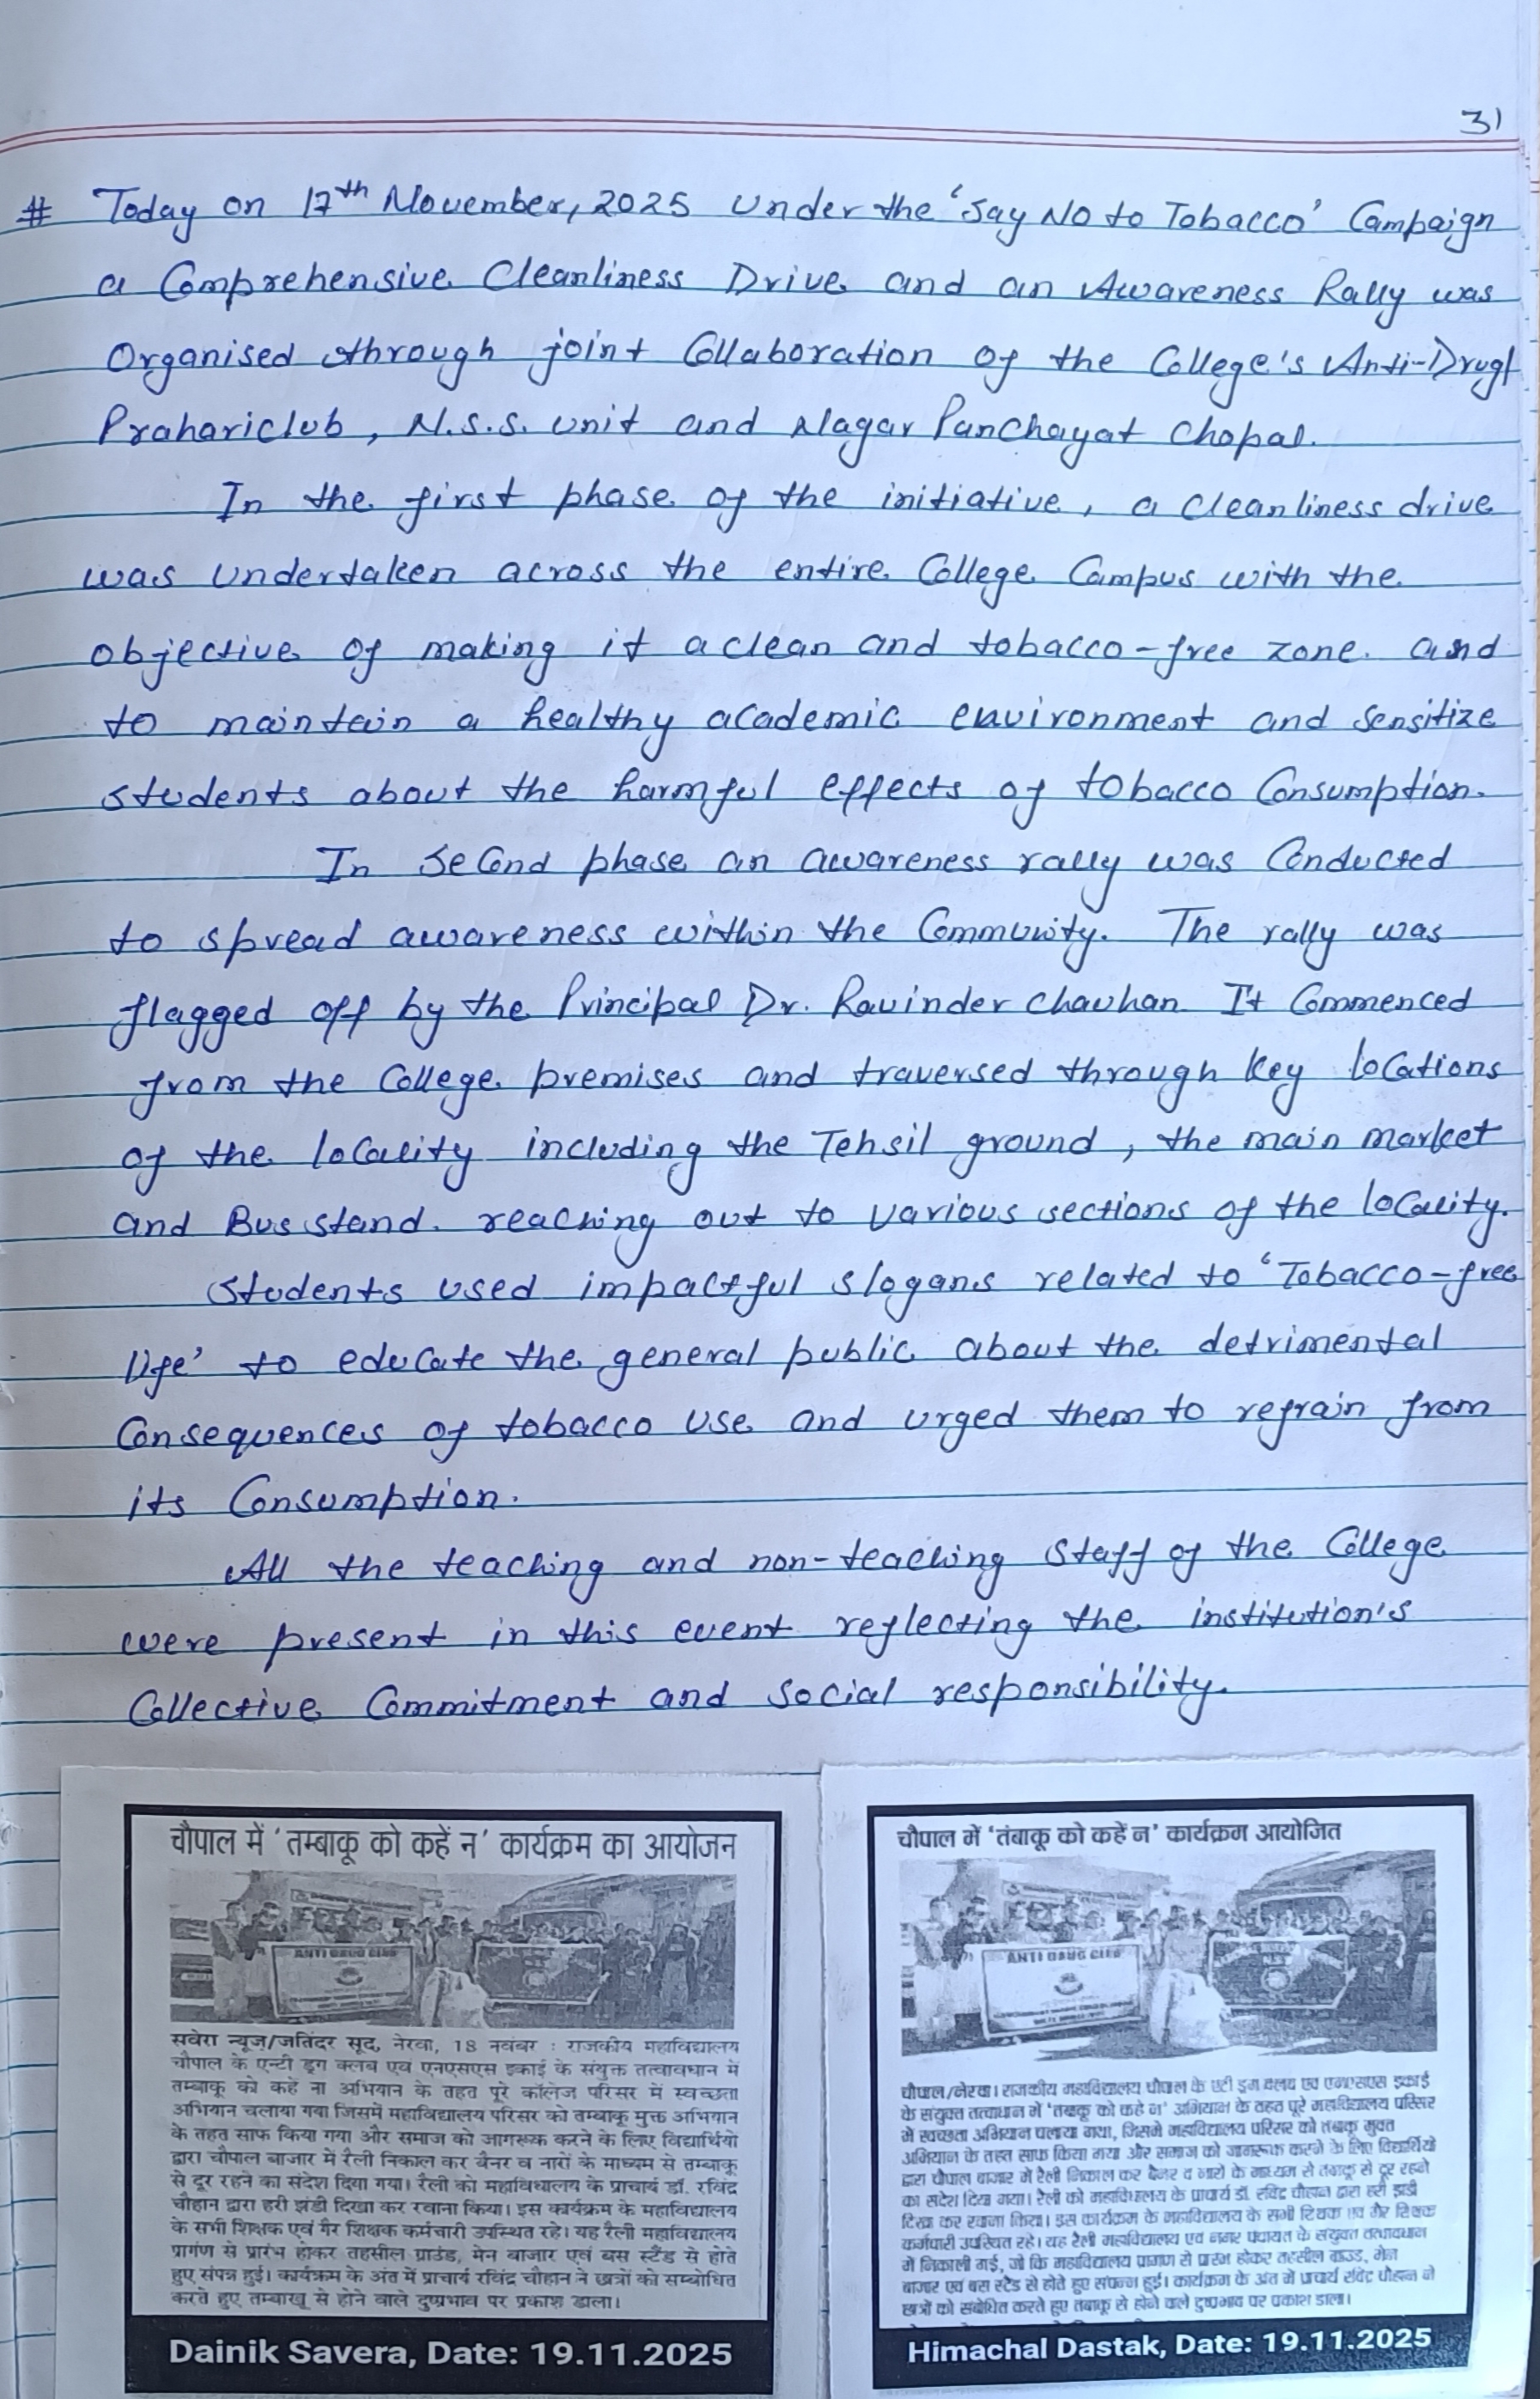 31
# Today on 17th November, 2025 Under the 'Say No to Tobacco' Campaign
a Comprehensive Cleanliness Drive and an Awareness Rally was
Organised through joint Collaboration of the College's Anti-Drug/
Prahariclub, N.S.S. Unit and Nagar Panchayat Chopal.
In the first phase of the initiative, a cleanliness drive
was undertaken across the entire College Campus with the
objective of making it a clean and tobacco-free zone. and
to maintain a healthy academic environment and sensitize
students about the harmful effects of tobacco Consumption.
In Second phase an awareness rally was Conducted
to spread awareness within the Community. The rally was
flagged off by the Principal Dr. Ravinder Chauhan. It Commenced
from the College premises and traversed through key locations
of the locality including the Tehsil ground, the main market
and Bus stand. reaching out to various sections of the locality.
Students used impactful slogans related to 'Tobacco-free
life' to educate the general public about the detrimental
Consequences of tobacco use and urged them to refrain from
its Consumption.
All the teaching and non-teaching Staff of the College
were present in this event reflecting the institution's
Collective Commitment and Social responsibility.
चौपाल में 'तम्बाकू को कहें न' कार्यक्रम का आयोजन
ANTI DRUG CLUB
सवेरा न्यूज/जतिंदर सूद, नेरवा, 18 नवंबर : राजकीय महाविद्यालय
चौपाल के एन्टी ड्रग क्लब एवं एनएसएस इकाई के संयुक्त तत्वावधान में
तम्बाकू को कहें ना अभियान के तहत पूरे कॉलेज परिसर में स्वच्छता
अभियान चलाया गया जिसमें महाविद्यालय परिसर को तम्बाकू मुक्त अभियान
के तहत साफ किया गया और समाज को जागरूक करने के लिए विद्यार्थियों
द्वारा चौपाल बाजार में रैली निकाल कर बैनर व नारों के माध्यम से तम्बाकू
से दूर रहने का संदेश दिया गया। रैली को महाविधालय के प्राचार्य डॉ. रविंद्र
चौहान द्वारा हरी झंडी दिखा कर रवाना किया। इस कार्यक्रम के महाविद्यालय
के सभी शिक्षक एवं गैर शिक्षक कर्मचारी उपस्थित रहे। यह रैली महाविद्यालय
प्रागंण से प्रारंभ होकर तहसील ग्राउंड, मेन बाजार एवं बस स्टैंड से होते
हुए संपन्न हुई। कार्यक्रम के अंत में प्राचार्य रविंद्र चौहान ने छात्रों को सम्बोधित
करते हुए तम्बाखू से होने वाले दुष्प्रभाव पर प्रकाश डाला।
Dainik Savera, Date: 19.11.2025
चौपाल में 'तंबाकू को कहें न' कार्यक्रम आयोजित
ANTI DRUG CLUB
चौपाल/नेरवा। राजकीय महाविद्यालय चौपाल के एंटी ड्रग क्लब एवं एनएसएस इकाई
के संयुक्त तत्वाधान में 'तंबाकू को कहे न' अभियान के तहत पूरे महाविद्यालय परिसर
में स्वच्छता अभियान चलाया गया, जिसमे महाविद्यालय परिसर को तंबाकू मुक्त
अभियान के तहत साफ किया गया और समाज को जागरूक करने के लिए विद्यार्थियों
द्वारा चौपाल बाजार में रैली निकाल कर बैनर व नारो के माध्यम से तंबाकू से दूर रहने
का संदेश दिया गया। रैली को महाविधालय के प्राचार्य डॉ. रविंद्र चौहान द्वारा हरी झंडी
दिखा कर रवाना किया। इस कार्यक्रम के महाविद्यालय के सभी शिक्षक एवं गैर शिक्षक
कर्मचारी उपस्थित रहे। यह रैली महाविद्यालय एवं नगर पंचायत के संयुक्त तत्वावधान
में निकाली गई, जो कि महाविद्यालय प्रागण से प्रारंभ होकर तहसील ग्राउंड, मेन
बाजार एवं बस स्टैंड से होते हुए संपन्न हुई। कार्यक्रम के अंत में प्राचार्य रविंद्र चौहान ने
छात्रों को संबोधित करते हुए तंबाकू से होने वाले दुष्प्रभाव पर प्रकाश डाला।
Himachal Dastak, Date: 19.11.2025